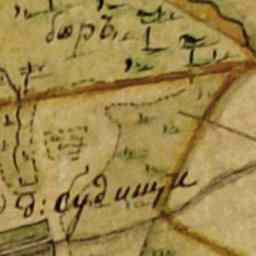 боръ
д: судищи